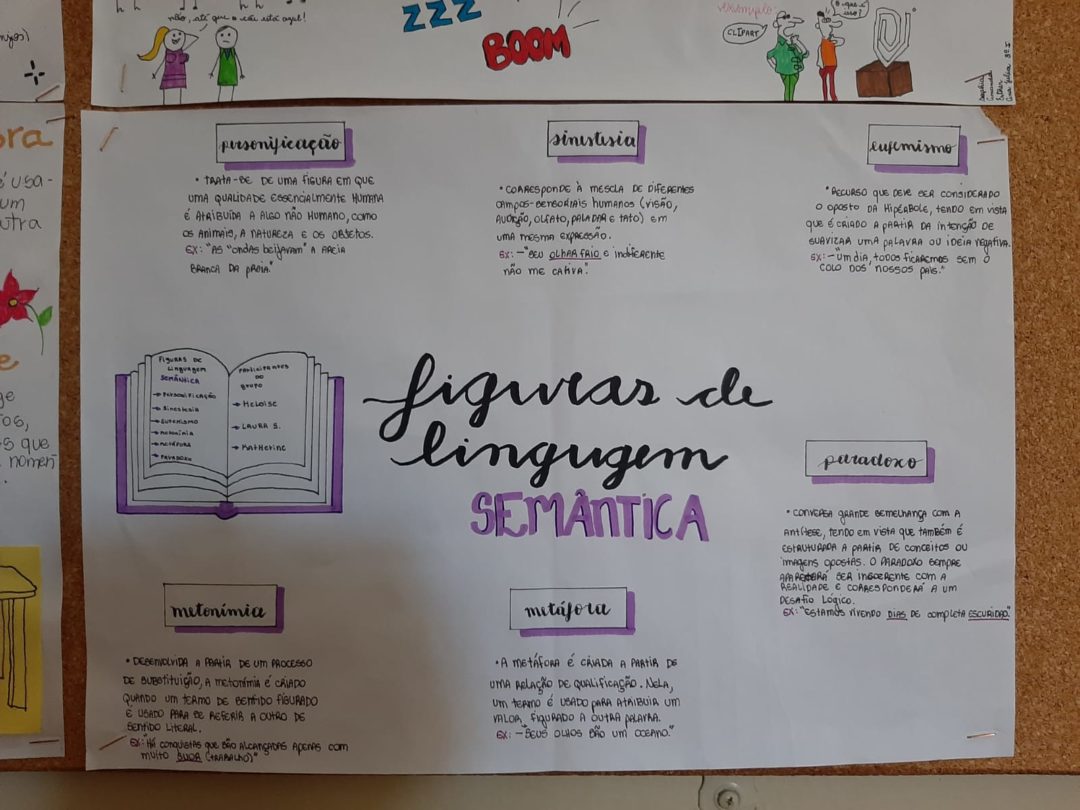 não, até que o céu está azul!
ZZZ
BOOM
exemplo:
CLIPART
O que é isso?
ora
é usa-
um
outra
que
nomen
personificação
• TRATA-SE DE UMA FIGURA EM QUE
UMA QUALIDADE ESSENCIALMENTE HUMANA
É ATRIBUÍDA A ALGO NÃO HUMANO, COMO
OS ANIMAIS, A NATUREZA E OS OBJETOS.
EX: "AS "ONDAS BEIJAVAM" A AREIA
BRANCA DA PRAIA."
sinestesia
• CORRESPONDE À MESCLA DE DIFERENTES
CAMPOS-SENSORIAIS HUMANOS (VISÃO,
AUDIÇÃO, OLFATO, PALADAR E TATO) EM
UMA MESMA EXPRESSÃO.
EX: -"SEU OLHAR FRIO E INDIFERENTE
NÃO ME CATIVA."
eufemismo
• RECURSO QUE DEVE SER CONSIDERADO
O OPOSTO DA HIPÉRBOLE, TENDO EM VISTA
QUE É CRIADO A PARTIR DA INTENÇÃO DE
SUAVIZAR UMA PALAVRA OU IDEIA NEGATIVA.
EX: -"UM DIA, TODOS FICAREMOS SEM O
COLO DOS NOSSOS PAIS."
FIGURAS DE
LINGUAGEM
SEMÂNTICA
→ PERSONIFICAÇÃO
→ SINESTESIA
→ EUFEMISMO
→ METONÍMIA
→ METÁFORA
→ PARADOXO
PARTICIPANTES
DO
GRUPO
→ HELOISE
→ LAURA S.
→ KATHERINE
figuras de
lingugem
SEMÂNTICA
paradoxo
• CONVERSA GRANDE SEMELHANÇA COM A
ANTÍTESE, TENDO EM VISTA QUE TAMBÉM É
ESTRUTURADA A PARTIR DE CONCEITOS OU
IMAGENS OPOSTAS. O PARADOXO SEMPRE
SER INCOERENTE COM A
REALIDADE E CORRESPONDERÁ A UM
DESAFIO LÓGICO.
EX: "ESTAMOS VIVENDO DIAS DE COMPLETA ESCURIDÃO."
metonímia
• DESENVOLVIDA A PARTIR DE UM PROCESSO
DE SUBSTITUIÇÃO, A METONÍMIA É CRIADO
QUANDO UM TERMO DE SENTIDO FIGURADO
É USADO PARA SE REFERIR A OUTRO DE
SENTIDO LITERAL.
EX: "HÁ CONQUISTAS QUE SÃO ALCANÇADAS APENAS COM
MUITO SUOR (TRABALHO)"
metáfora
• A METÁFORA É CRIADA A PARTIR DE
UMA RELAÇÃO DE QUALIFICAÇÃO. NELA,
UM TERMO É USADO PARA ATRIBUIR UM
VALOR FIGURADO A OUTRA PALAVRA.
EX: -"SEUS OLHOS SÃO UM OCEANO."